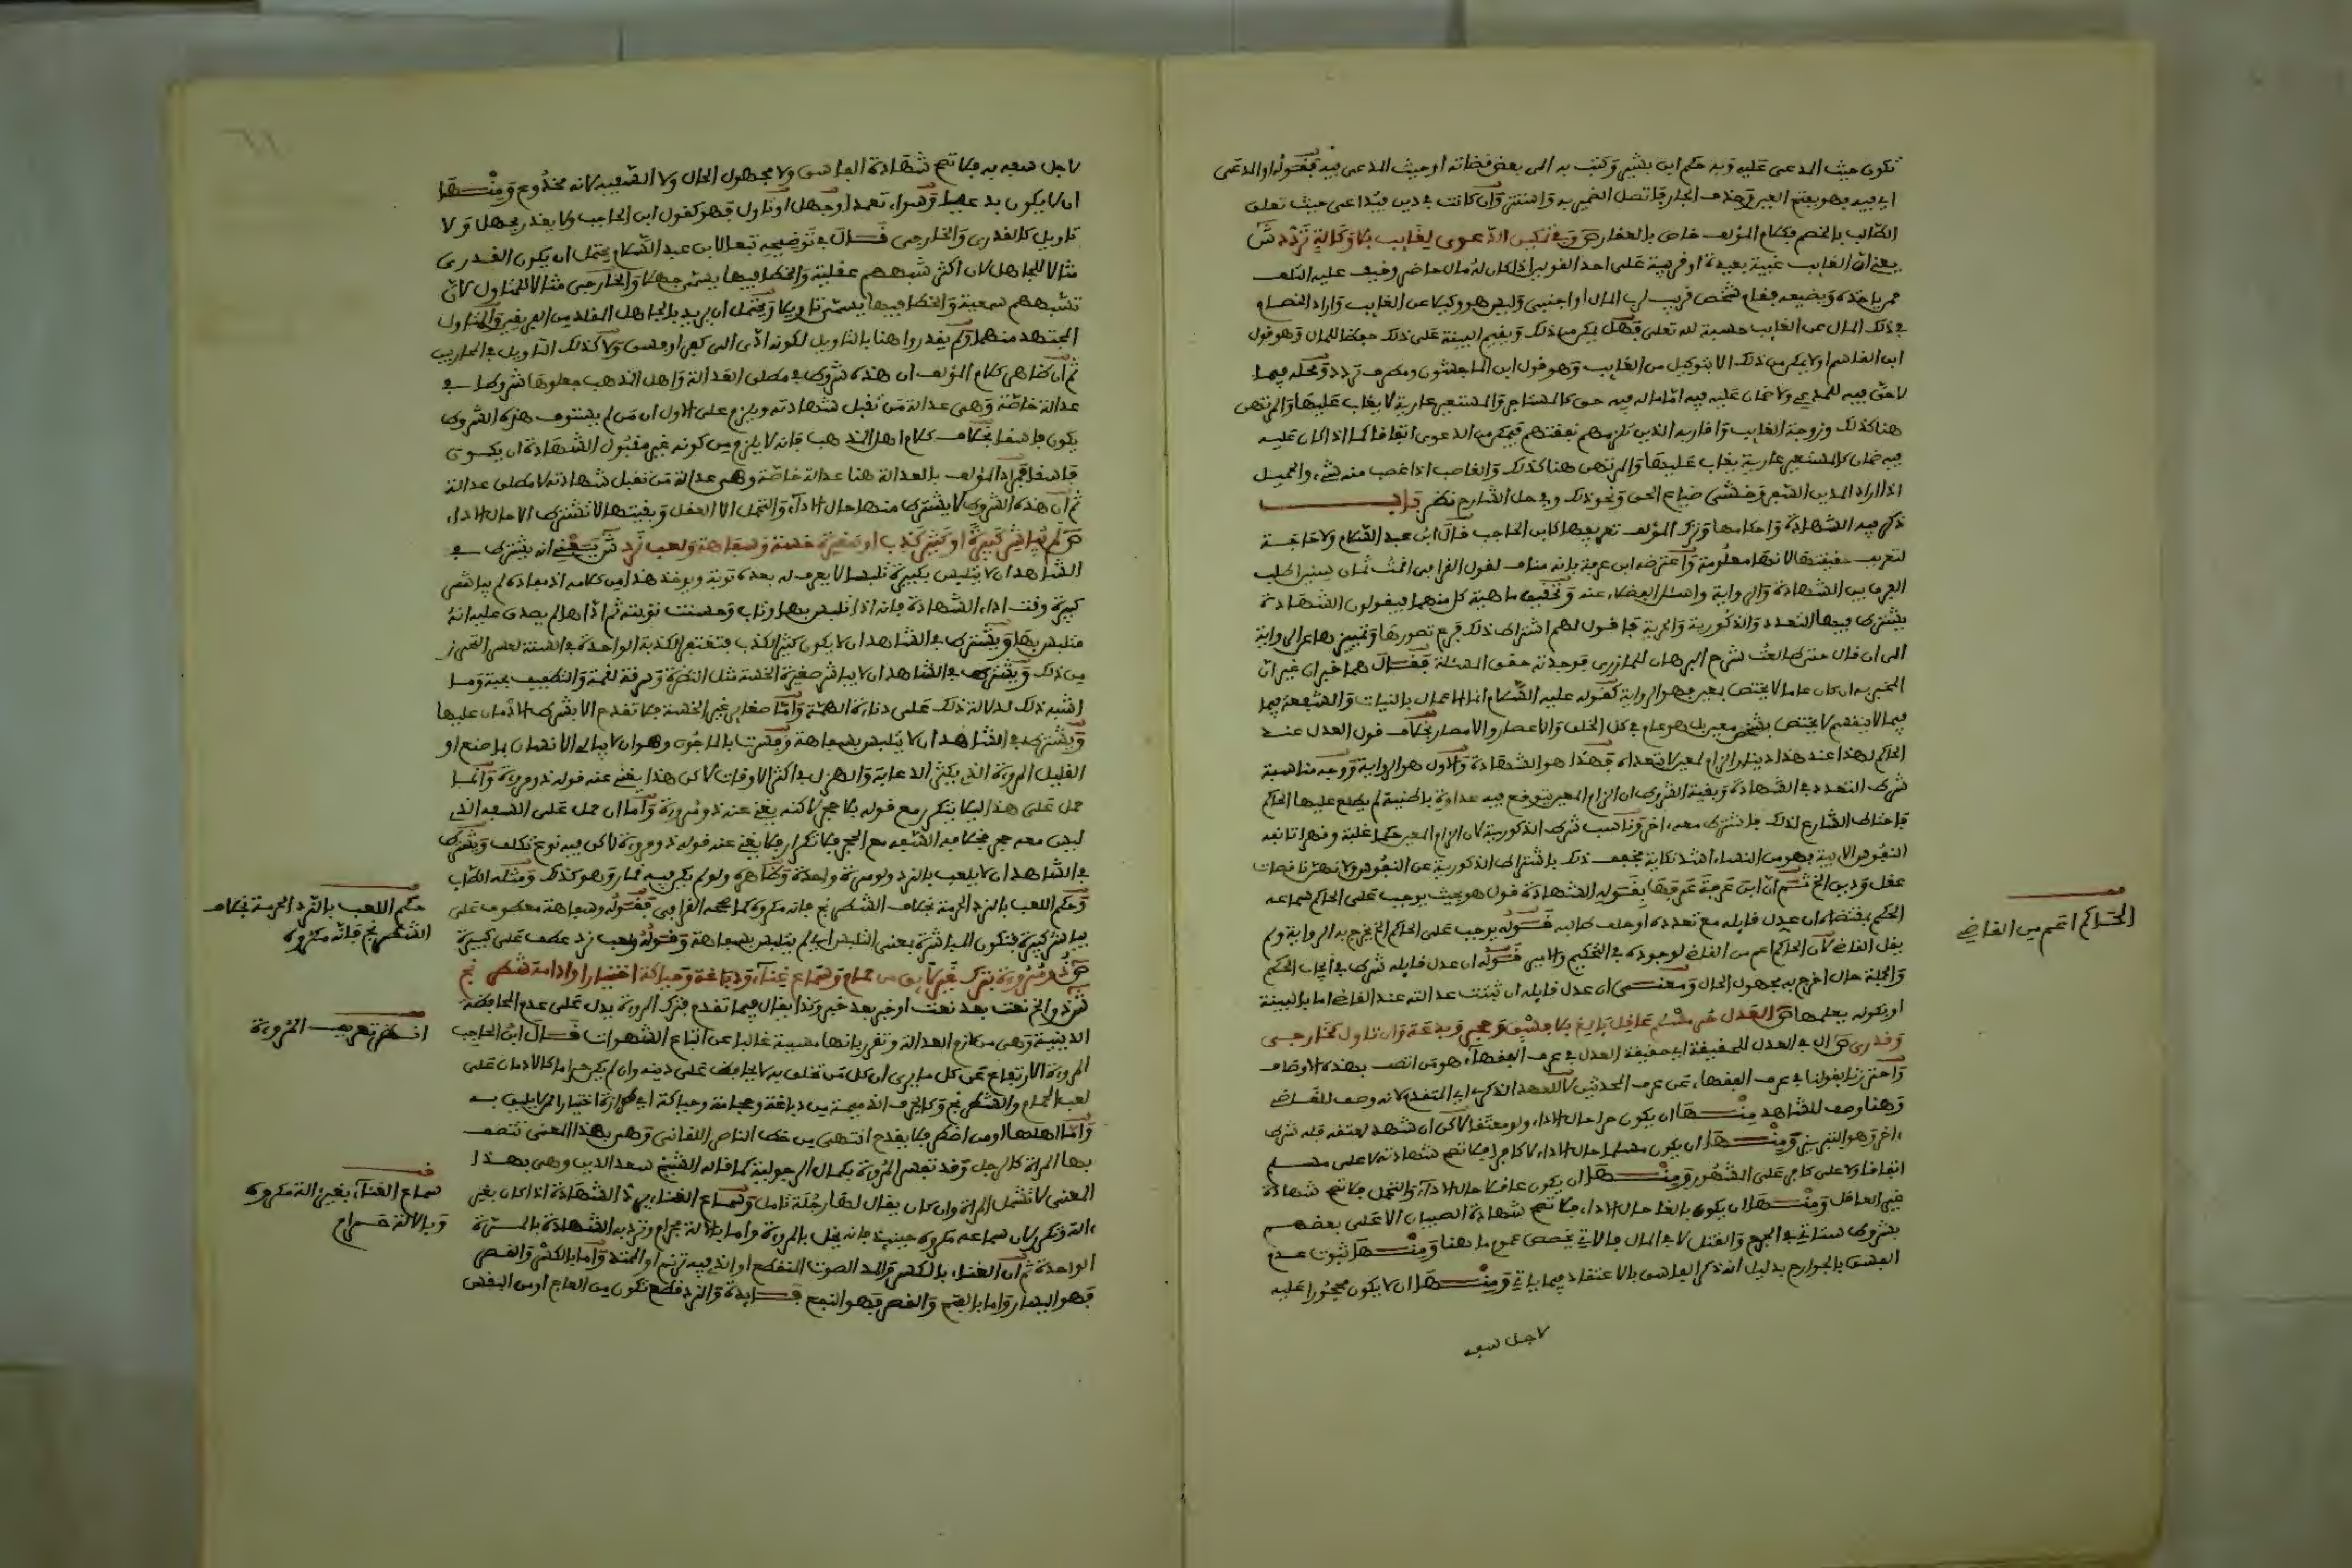 تكون حيث المدعى عليه وبه حكم ابن بشير وكتب به الى بعض قضاته او حيث المدعى فيه فقوله او المدعى
اي فيه فهو بفتح العين وحذف الجار فاتصل الضمير به واستتر وان كانت في دين فيتداعى حيث تعلق
الطالب بالخصم فكلام المؤلف خاص بالعقار ص وفي تمكين الدعوى لغايب بلا وكالة تردد ش
يعني ان الغايب غيبة بعيدة او قريبة على احد القولين اذا كان له مال حاضر وخيف عليه التلف
ممن ياخذه ويضيعه فقام شخص قريب لرب المال او اجنبي وليس هو وكيلا عن الغايب واراد الخصام
في ذلك المال عن الغايب حسبة لله تعلى فهل يمكن من ذلك ويقيم البينة على ذلك حفظا للمال وهو قول
ابن القاسم او لا يمكن من ذلك الا بتوكيل من الغايب وهو قول ابن الماجشون ومطرف تردد ومحله فيما
لا حق فيه للمدعي ولا ضمان عليه فيه اما ما له فيه حق كالمستاجر والمستعير عارية لا يغاب عليها والمرتهن
هنا كذلك وزوجة الغايب واقاربه الذين تلزمهم نفقتهم فيمكن من الدعوى اتفاقا كما اذا كان عليه
فيه ضمان كالمستعير عارية يغاب عليها والمرتهن رهنا كذلك والغاصب اذا غصب منه شيء والحميل
اذا اراد المدين السفر وخشي ضياع الحق ونحو ذلك وفي حل الشارح نظر باب
ذكر فيه الشهادة واحكامها وترك المؤلف تعريفها كابن الحاجب قال ابن عبد السلام ولا حاجة
لتعريف حقيقتها لانها معلومة واعترضه ابن عرفة بانه مناف لقول القرافي اقمت ثمان سنين اطلب
الفرق بين الشهادة والرواية واسئل الفضلاء عنه وتحقيق ماهية كل منهما فيقولون الشهادة
يشترط فيها التعدد والذكورية والحرية فاقول لهم اشتراط ذلك فرع تصورها وتمييزها عن الرواية
الى ان قال حتى طالعت شرح البرهان للمازري فوجدته حقق المسئلة فقال هما خبران غير ان
المخبر به ان كان عاما لا يختص بمعين فهو الرواية كقوله عليه السلام انما الاعمال بالنيات والشفعة فيما
فيما لا ينقسم لا يختص بشخص معين بل هو عام في كل الخلق والاعصار والامصار بخلاف قول العدل عند
الحاكم لهذا عند هذا دينار الزام لمعين لا يتعداه فهذا هو الشهادة والاول هو الرواية ووجه مناسبة
شرط التعدد في الشهادة وبقية الشروط ان الزام المعين يتوقع فيه عداوة باطنية لم يطلع عليها الحاكم
فاحتاط الشارع لذلك باشتراط معه اخر وناسب شرط الذكورية لان الزام المعين حكما غلبة وقهرا تانفه
النفوس الابية وهو من النساء اشد نكاية فخفف ذلك باشتراط الذكورية عن النفوس ولانهن ناقصات
عقل ودين الخ ثم ان ابن عرفة عرفها بقوله الشهادة قول هو بحيث يوجب على الحاكم سماعه
الحكم بمقتضاه ان عدل قايله مع تعدده او حلف طالبه فقوله يوجب على الحاكم الخ يخرج به الرواية ولم
يقل القاضي لان الحاكم اعم من القاضي لوجوده في التحكيم والامير فقوله ان عدل قايله شرط في ايجاب الحكم
والجملة حال اخرج به مجهول الحال ومعنى ان عدل قايله ان ثبتت عدالته عند القاضي اما بالبينة
او بكونه يعلمها ص العدل حر مسلم عاقل بالغ بلا فسق وحجر وبدعة وان تاول كخارجي
وقدري ش ال في العدل للحقيقة اي حقيقة العدل في عرف الفقهاء هو من اتصف بهذه الاوصاف
واحترزنا بقولنا في عرف الفقهاء عن عرف المحدثين لا للعهد الذكري اي المتقدم لانه وصف للقاضي
وهنا وصف للشاهد منها ان يكون حرا حال الاداء ولو معتقا لاكن ان شهد لمعتقه فله شرط
اخر وهو التبريز ومنها ان يكون مسلما حال الاداء لا كافرا فلا تصح شهادته لا على مسلم
اتفاقا ولا على كافر على المشهور ومنها ان يكون عاقلا حال الاداء والتحمل فلا تصح شهادة
غير العاقل ومنها ان يكون بالغا حال الاداء فلا تصح شهادة الصبيان الا على بعضهم
بشروط ستاتي في الجرح والقتل لا في المال فالاتي يخصص عموم ما هنا ومنها ثبوت عدم
الفسق بالجوارح بدليل انه ذكر الفاسق بالاعتقاد فيما ياتي ومنها ان لا يكون محجورا عليه
لاجل سفه
الحاكم اعم من القاضي
لاجل سفه به فلا تصح شهادة الفاسق ولا مجهول الحال ولا السفيه لانه مخدوع ومنها
ان لا يكون بدعيا وسواء تعمد او جهل او تاول فهو كقول ابن الحاجب ولا يعذر بجهل ولا
تاويل كالقدري والخارجي قال في توضيحه تبعا لابن عبد السلام يحتمل ان يكون القدري
مثالا للجاهل لان اكثر شبههم عقلية والخطا فيها يسمى جهلا والخارجي مثالا للمتاول لان
شبههم سمعية والخطا فيها يسمى تاويلا ويحتمل ان يريد بالجاهل المقلد من الفريقين والمتاول
المجتهد منهما ولم يعذروا هنا بالتاويل لكونه ادى الى كفر او فسق ولا كذلك التاويل في المحاريب
ثم ان ظاهر كلام المؤلف ان هذه شروط في مطلق العدالة واهل المذهب جعلوها شروطا في
عدالة خاصة وهي عدالة من تقبل شهادته ويلزم على الاول ان من لم يستوف هذه الشروط
يكون فاسقا بخلاف كلام اهل المذهب فانه لا يلزم من كونه غير مقبول الشهادة ان يكون
فاسقا فمراد المؤلف بالعدالة هنا عدالة خاصة وهي عدالة من تقبل شهادته لا مطلق عدالة
ثم ان هذه الشروط لا يشترط منها حال الاداء والتحمل الا العقل وبقيتها لا تشترط الا حال الاداء
ص لم يباشر كبيرة او كثير كذب او صغيرة خسة وسفاهة ولعب نرد ش يعني انه يشترط في
الشاهد ان لا يتلبس بكبيرة تلبسا لا يعرف له بعده توبة ويوخذ هذا من كلامه اذ مفاده لم يباشر
كبيرة وقت اداء الشهادة فانه اذا تلبس بها وتاب وحسنت توبته ثم اداها لم يصدق عليه انه
متلبس بها ويشترط في الشاهد ان لا يكون كثير الكذب فتغتفر الكذبة الواحدة في السنة لعسر التحرز
من ذلك ويشترط في الشاهد ان لا يباشر صغيرة الخسة مثل النظرة وسرقة لقمة والتطفيف بحبة وما
اشبه ذلك لدلالة ذلك على دناءة الهمة واما صغاير غير الخسة فلا تقدح الا بشرط الادمان عليها
ويشترط في الشاهد ان لا يتلبس بسفاهة وفسرت بالمجون وهو ان لا يبالي الانسان بما صنع او
القليل المروءة الذي يكثر الدعابة والهزل في اكثر الاوقات لاكن هذا يغني عنه قوله ذو مروءة وانما
حمل على هذا ليلا يتكرر مع قوله بلا حجر لاكنه يغني عنه ذو مروءة واما ان حمل على السفه الذي
ليس معه حجر بخلاف السفه مع الحجر فلا تكرار فلا يغني عنه قوله ذو مروءة لاكن فيه نوع تكلف ويشترط
في الشاهد ان لا يلعب بالنرد ولو مرة واحدة وظاهره ولو لم يكن فيه قمار وهو كذلك ومثله الطاب
وحكم اللعب بالنرد الحرمة بخلاف الشطرنج فانه مكروه كما صححه القرافي فقوله وسفاهة معطوف على
يباشر كبيرة فتكون المباشرة بمعنى التلبس اي لم يتلبس بسفاهة وقوله ولعب نرد عطف على كبيرة
ص ذو مروءة بترك غير لايق من حمام وسماع غناء ودباغة وحياكة اختيارا وادامة شطرنج
ش ذو الخ نعت بعد نعت او خبر بعد خبر وكذا يقال فيما تقدم فترك المروءة يدل على عدم المحافظة
الدينية وهي من لازم العدالة وتقرر بانها مسببة غالبا عن اتباع الشهوات قال ابن الحاجب
المروءة الارتفاع عن كل ما يرى ان كل من تخلق به لا يحافظ على دينه وان لم يكن حراما كالادمان على
لعب الحمام والشطرنج وكالحرف الذميمة من دباغة وحجامة وحياكة اي لمن ازراه اختيارا ممن لا يليق به
واما اهلها او من اضطر فلا يقدح انتهى من خط الناصر اللقاني وهي بهذا المعنى تتصف
بها المراة كالرجل وقد تفسر المروءة بكمال الرجولية كما قاله الشيخ سعد الدين وهي بهذا
المعنى لا تشمل المراة وان كان يقال لها رجلة تامل وسماع الغناء يرد الشهادة اذا كان بغير
الة وتكرر لان سماعه مكروه حينيذ فانه يخل بالمروءة واما بالالة فحرام وترد به الشهادة بالمرة
الواحدة ثم ان الغناء بالكسر والمد الصوت المتقطع او الذي فيه ترنم او المتد واما بالكسر والقصر
فهو اليسار واما بالفتح والقصر فهو النفع فايدة والنرد قطع تكون من العاج او من البقس
حكم اللعب بالنرد الحرمة بخلاف
الشطرنج فانه مكروه
انظر تعريف المروءة
سماع الغناء بغير الة مكروه
وبالالة حرام